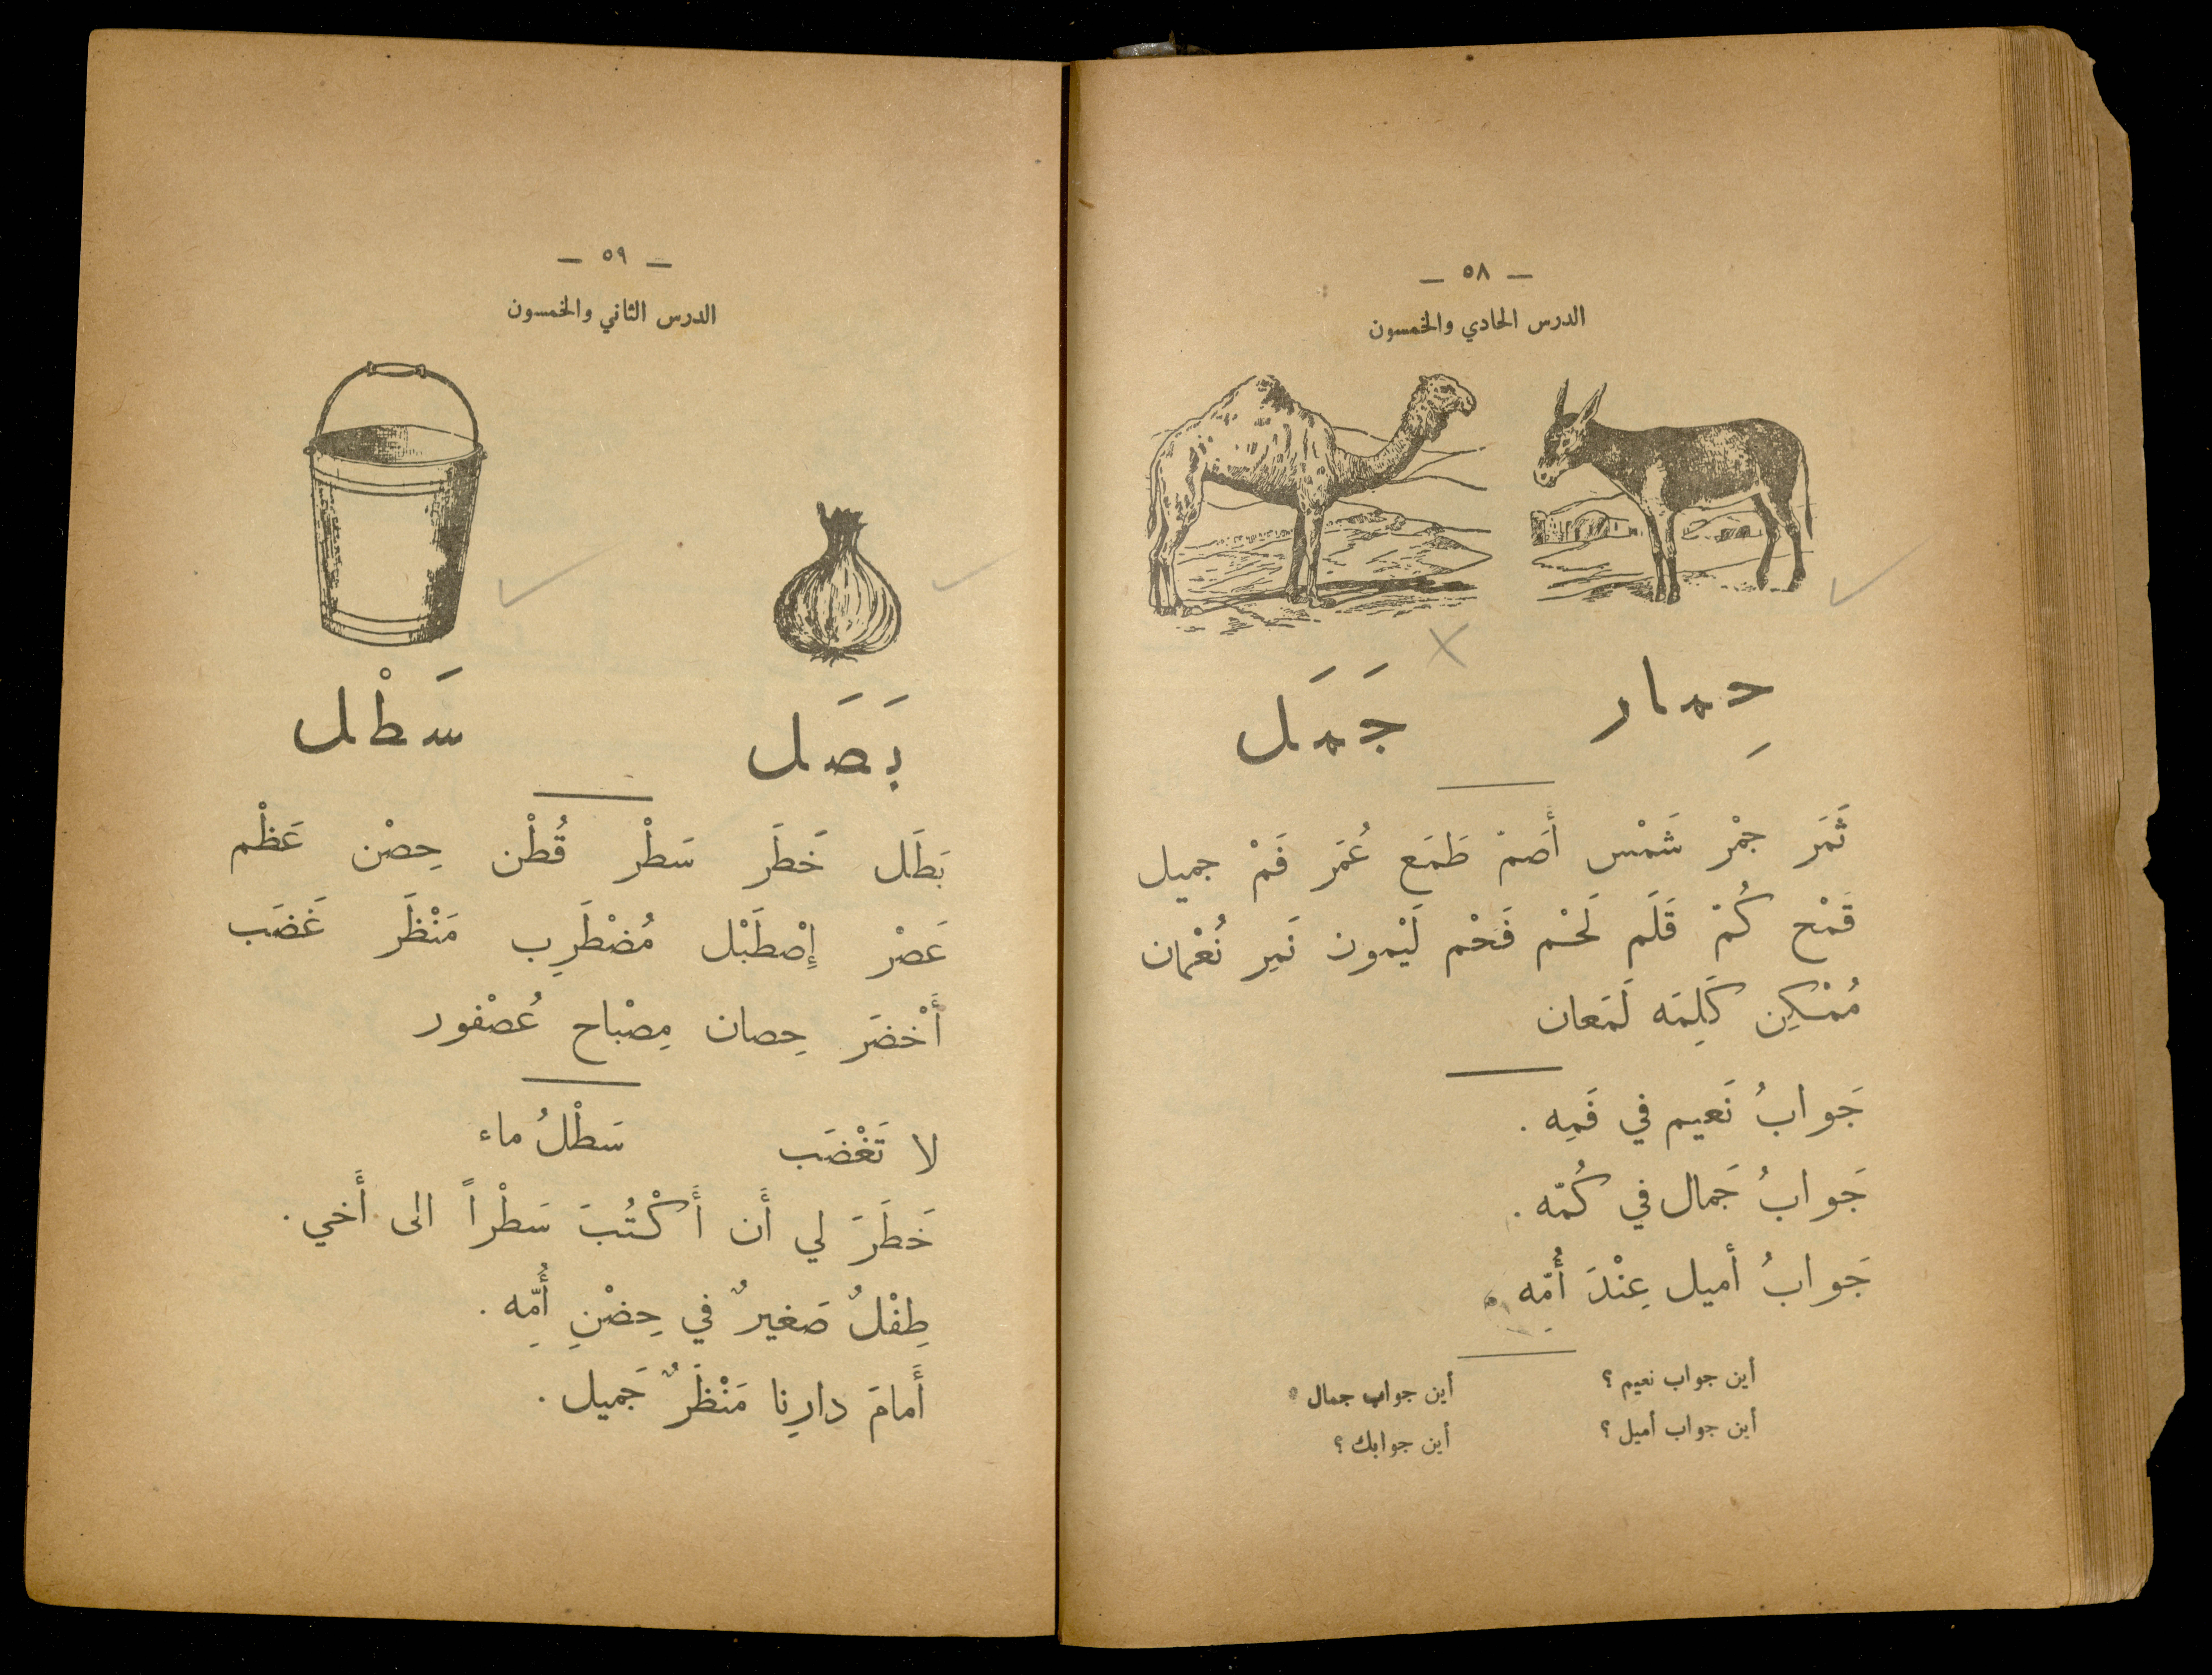 — ٥٨ —
الدرس الحادي والخمسون
حِمار جَمَل
ثَمَر جمْر شَمْس أَصَمّ طَمَع عُمَر فَمْ جميل
قَمْح كُمّ قَلَم لَحْم فَحْم لَيْمون نَمِر نُعْمان
مُمْكِن كَلِمَه لَمَعان
جَوابُ نَعيم في فَمِه .
جَوابُ جَمال في كُمّه .
جَوابُ أميل عِنْدَ أُمِّه .
أين جواب نعيم ؟ أين جواب جمال ؟
أين جواب أميل ؟ أين جوابك ؟
— ٥٩ —
الدرس الثاني والخمسون
بَصَل سَطْل
بَطَل خَطَر سَطْر قُطْن حِصْن عَظْم
عَصْر إِصْطَبْل مُضْطَرِب مَنْظَر غَضَب
أَخْضَر حِصان مِصْباح عُصْفور
لا تَغْضَب سَطْلُ ماء
خَطَرَ لي أَن أَكْتُبَ سَطْراً الى أَخي .
طِفْلٌ صَغيرٌ في حِضْنِ أُمِّه .
أَمامَ دارِنا مَنْظَرٌ جَميل .